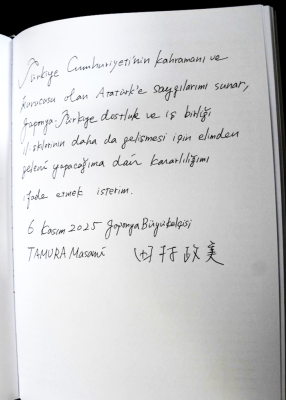 Türkiye Cumhuriyeti'nin kahramanı ve
kurucusu olan Atatürk'e saygılarımı sunar,
Japonya-Türkiye dostluk ve iş birliği
ilişkilerinin daha da gelişmesi için elimden
geleni yapacağıma dair kararlılığımı
ifade etmek isterim.
6 Kasım 2025 Japonya Büyükelçisi
TAMURA Masami 田村政美